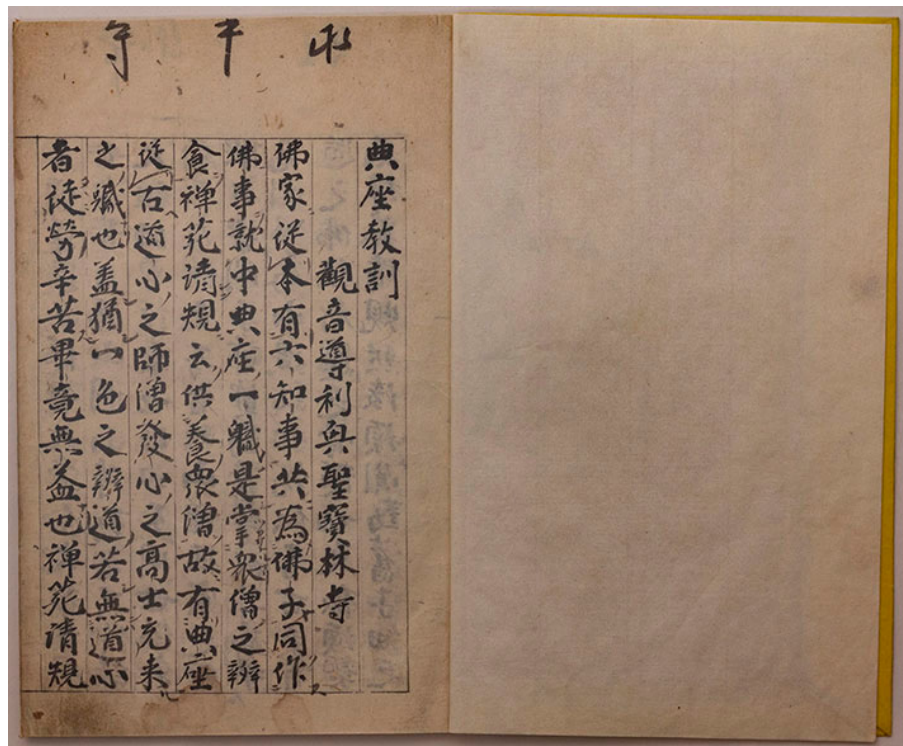 永平寺
典座教訓
觀音導利興聖寳林寺
佛家従本有六知事共為佛子同作
佛事就中典座一軄是掌衆僧之辨
食禅苑清規云供養衆僧故有典座
従古道心之師僧發心之高士充来
之軄也盖猶一色之辨道若無道心
者徒勞辛苦畢竟無益也禅苑清規